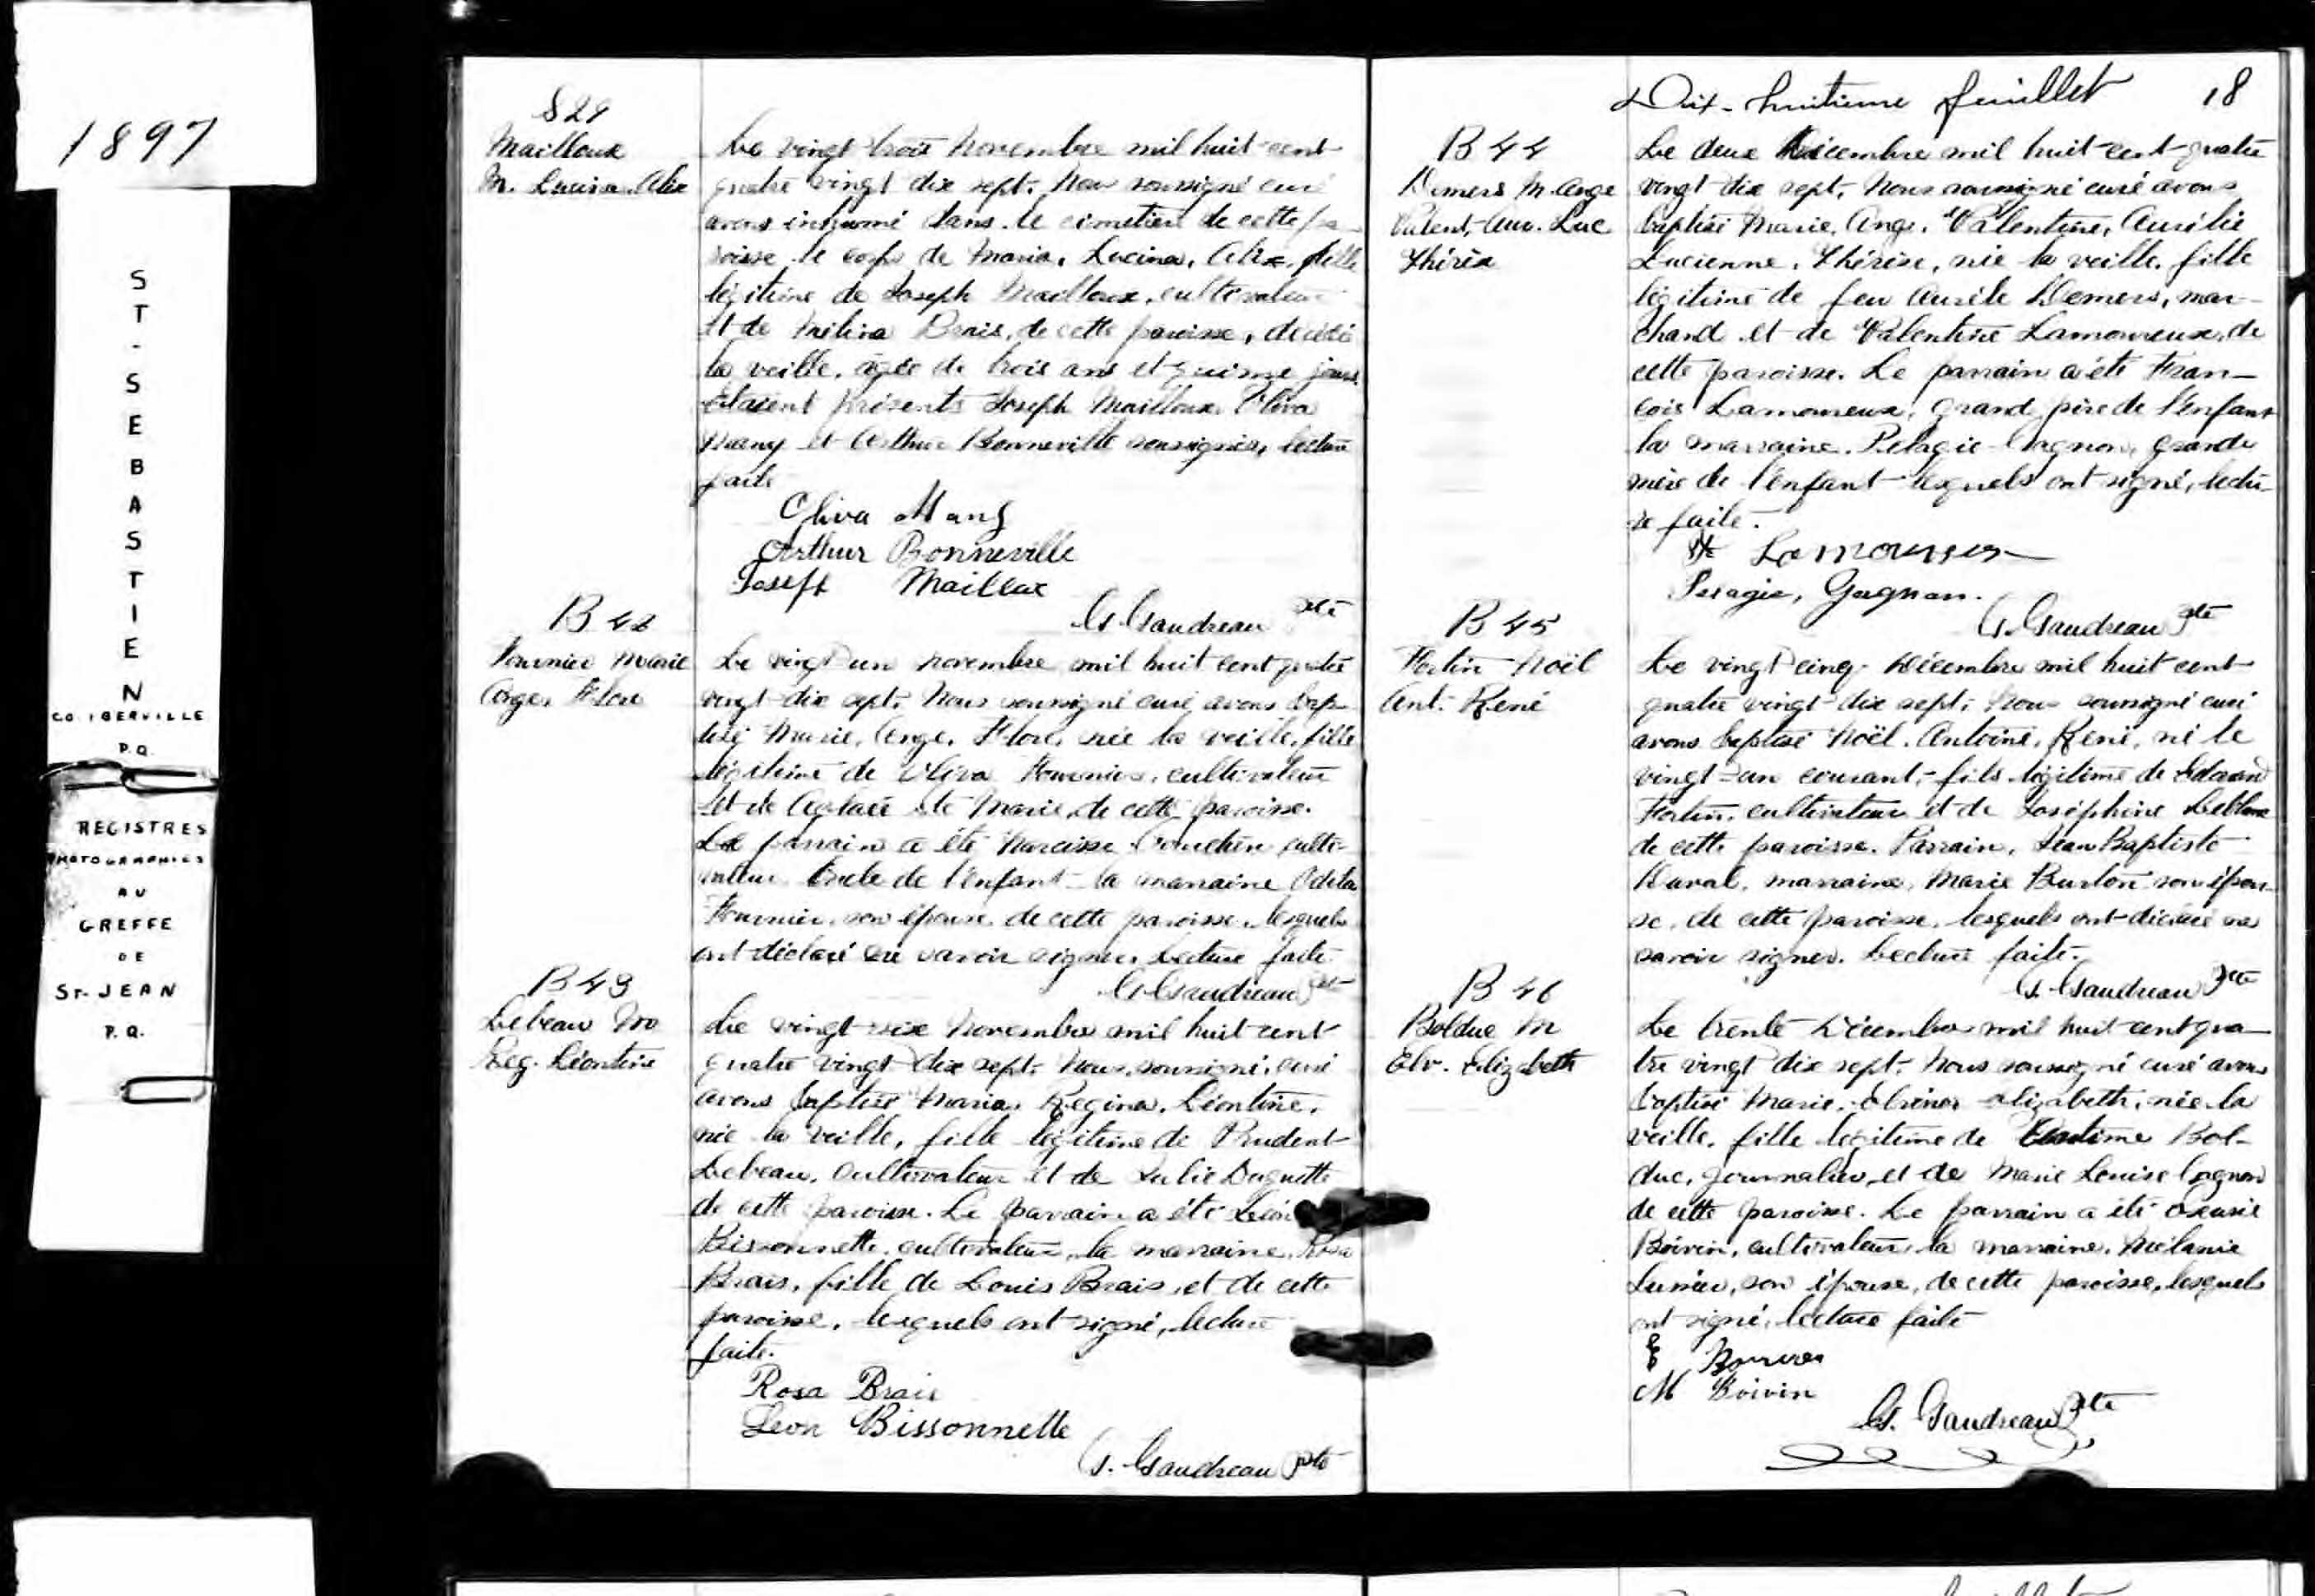 1897
ST-SEBASTIEN
CO. IBERVILLE
P.Q.
REGISTRES
PHOTOGRAPHIES
AU
GREFFE
DE
ST-JEAN
P.Q.
S 29
Mailloux
M. Lucina Alix
Le vingt trois Novembre mil huit cent
quatre vingt dix sept. Nous soussigné curé
avons inhumé dans le cimetière de cette pa
roisse le corps de Maria, Lucina, Alix, fille
légitime de Joseph Mailloux, cultivateur
et de Mélina Brais, de cette paroisse, décédée
la veille, agée de trois ans et quinze jours.
Etaient présents Joseph Mailloux, Oliva
et Arthur Bonneville soussignés, lecture
faite
Oliva
Arthur Bonneville
Joseph Mailloux
G. Gaudreau Ptre
B 42
Fournier Marie
Ange, Flore
Le vingt un novembre mil huit cent quatre
vingt dix sept. Nous soussigné curé avons bap
tisé Marie, Ange, Flore, née la veille, fille
légitime de Oliva Fournier, cultivateur
et de Ste Marie, de cette paroisse.
Le parrain a été Narcisse culti-
vateur oncle de l'enfant la marraine Odila
Fournier, son épouse, de cette paroisse, lesquels
ont déclaré ne savoir signer. Lecture faite
G. Gaudreau Ptre
B 43
Lebeau Ma
Reg. Léontine
Le vingt six Novembre mil huit cent
quatre vingt dix sept. Nous, soussigné, curé
avons baptisé Maria, Regina, Léontine,
née la veille, fille légitime de Prudent
Lebeau, cultivateur et de Julie Duquette
de cette paroisse. Le parrain a été Léon
Bissonnette, cultivateur, la marraine, Rosa
Brais, fille de Louis Brais, et de cette
paroisse, lesquels ont signé, lecture
faite.
Rosa Brais
Leon Bissonnette
G. Gaudreau Ptre
Dix-huitieme feuillet 18
B 44
Demers M. Ange
Valent. Aur. Luc
Thérèse
Le deux Décembre mil huit cent quatre
vingt dix sept. Nous soussigné curé avons
baptisé Marie, Ange, Valentine, Aurélie
Lucienne, Thérèse, née la veille, fille
légitime de feu Aurèle Demers, mar-
chand et de Valentine Lamoureux, de
cette paroisse. Le parrain a été Fran-
cois Lamoureux, grand père de l'enfant
la marraine, Pélagie Gagnon, grande
mère de l'enfant lesquels ont signé, lectu-
re faite.
Pelagie, Gagnon.
G. Gaudreau Ptre
B 45
Fortin Noël
Ant. René
Le vingt cinq Décembre mil huit cent
quatre vingt dix sept. Nous soussigné curé
avons baptisé Noël, Antoine, René, né le
vingt-un courant, fils légitime de Edouard
Fortin, cultivateur et de Joséphine Leblanc
de cette paroisse. Parrain, Jean Baptiste
Duval, marraine, Marie Burton son épou-
se, de cette paroisse, lesquels ont déclaré ne
savoir signer. Lecture faite.
G. Gaudreau Ptre
B 46
Bolduc M
Elv. Elizabeth
Le trente Décembre mil huit cent qua-
tre vingt dix sept. Nous soussigné curé avons
baptisé Marie, Elvina Elizabeth, née la
veille, fille légitime de Bol-
duc, journalier, et de Marie Louise Gagnon
de cette paroisse. Le parrain a été
Boivin, cultivateur, la marraine, Mélanie
son épouse, de cette paroisse, lesquels
ont signé, lecture faite
M Boivin
G. Gaudreau Ptre